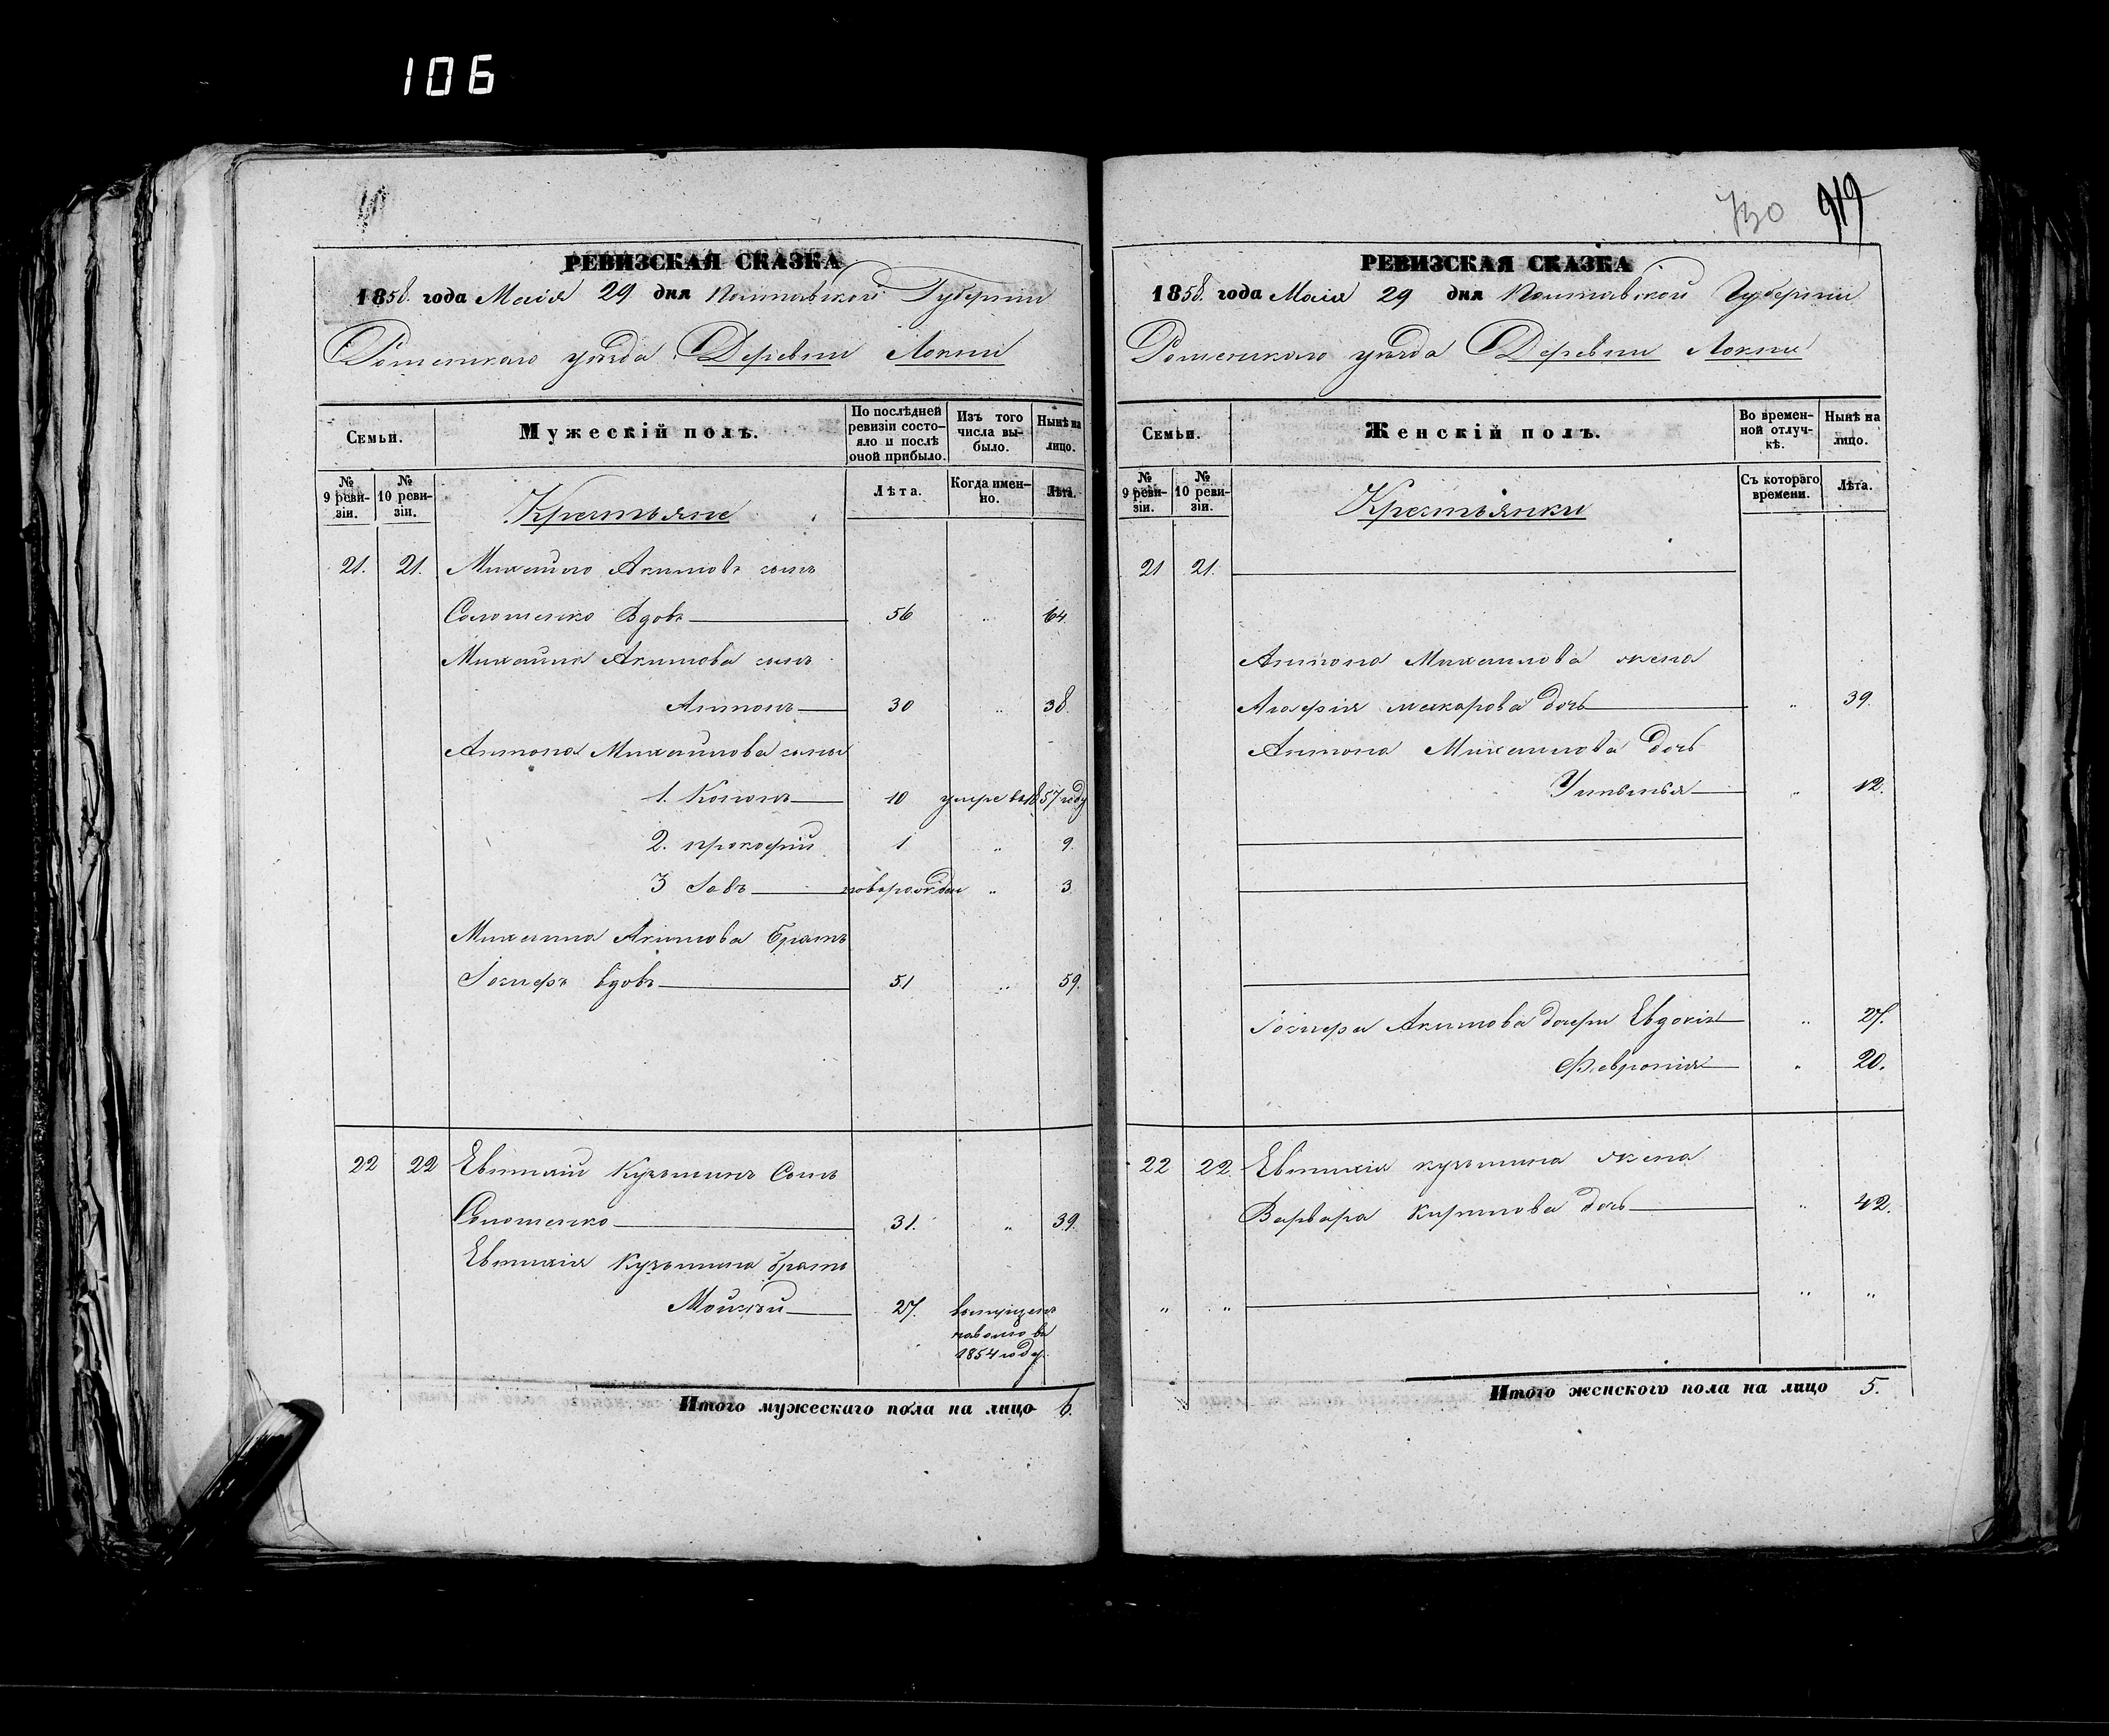 106
РЕВИЗСКАЯ СКАЗКА
1858. года Маія 29 дня Полтавской Губерніи
Роменскаго уѣзда Деревни Локни
Семьи.
Мужескій полъ.
По послѣдней ревизіи состояло и послѣ оной прибыло.
Изъ того числа выбыло.
Нынѣ на лицо.
№ 9 ревизіи.
№ 10 ревизіи.
Крестьяне
Лѣта.
Когда именно.
Лѣта.
21. 21. Михайло Акимовъ сынъ
Соломенко Вдовъ 56 " 64.
Михайла Акимова сынъ
Антонъ 30 " 38.
Антона Михайлова сыны
1. Кононъ 10 умре въ 1857 году
2. прокофій 1 " 9.
3 Савъ новорожден " 3
Михаила Акимова братъ
Іосифъ вдовъ 51 " 59.
22 22 Евтихій Кузьминъ Сынъ
Соломенко 31. " 39.
Евтихія Кузьмина братъ
Мойсей 27. выпущенъ
наволю въ
1854 году.
Итого мужескаго пола на лицо 6.
730 919
РЕВИЗСКАЯ СКАЗКА
1858. года Маія 29 дня Полтавской Губерніи
Роменскаго уѣзда Деревни Локни
Семьи.
Женскій полъ.
Во временной отлучкѣ.
Нынѣ на лицо.
№ 9 ревизіи.
№ 10 ревизіи.
Крестьянки
Съ котораго времени.
Лѣта.
21 21.
Антона Михаилова жена
Агафія макарова дочь " 39.
Антона Михаилова дочь
Ульянья " 12.
Іосифа Акимова дочери Евдокія " 27.
Февронія " 20.
22 22 Евтихія кузьмина жена
Варвара Кирилова дочь " 42.
" " " "
Итого женского пола на лицо 5.